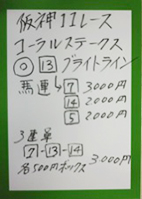 阪神11レース
コーラルステークス
◎ 13 ブライトライン
馬連 7 3000円
14 2000円
5 2000円
3連単
7-13-14
各500円ボックス 3,000円